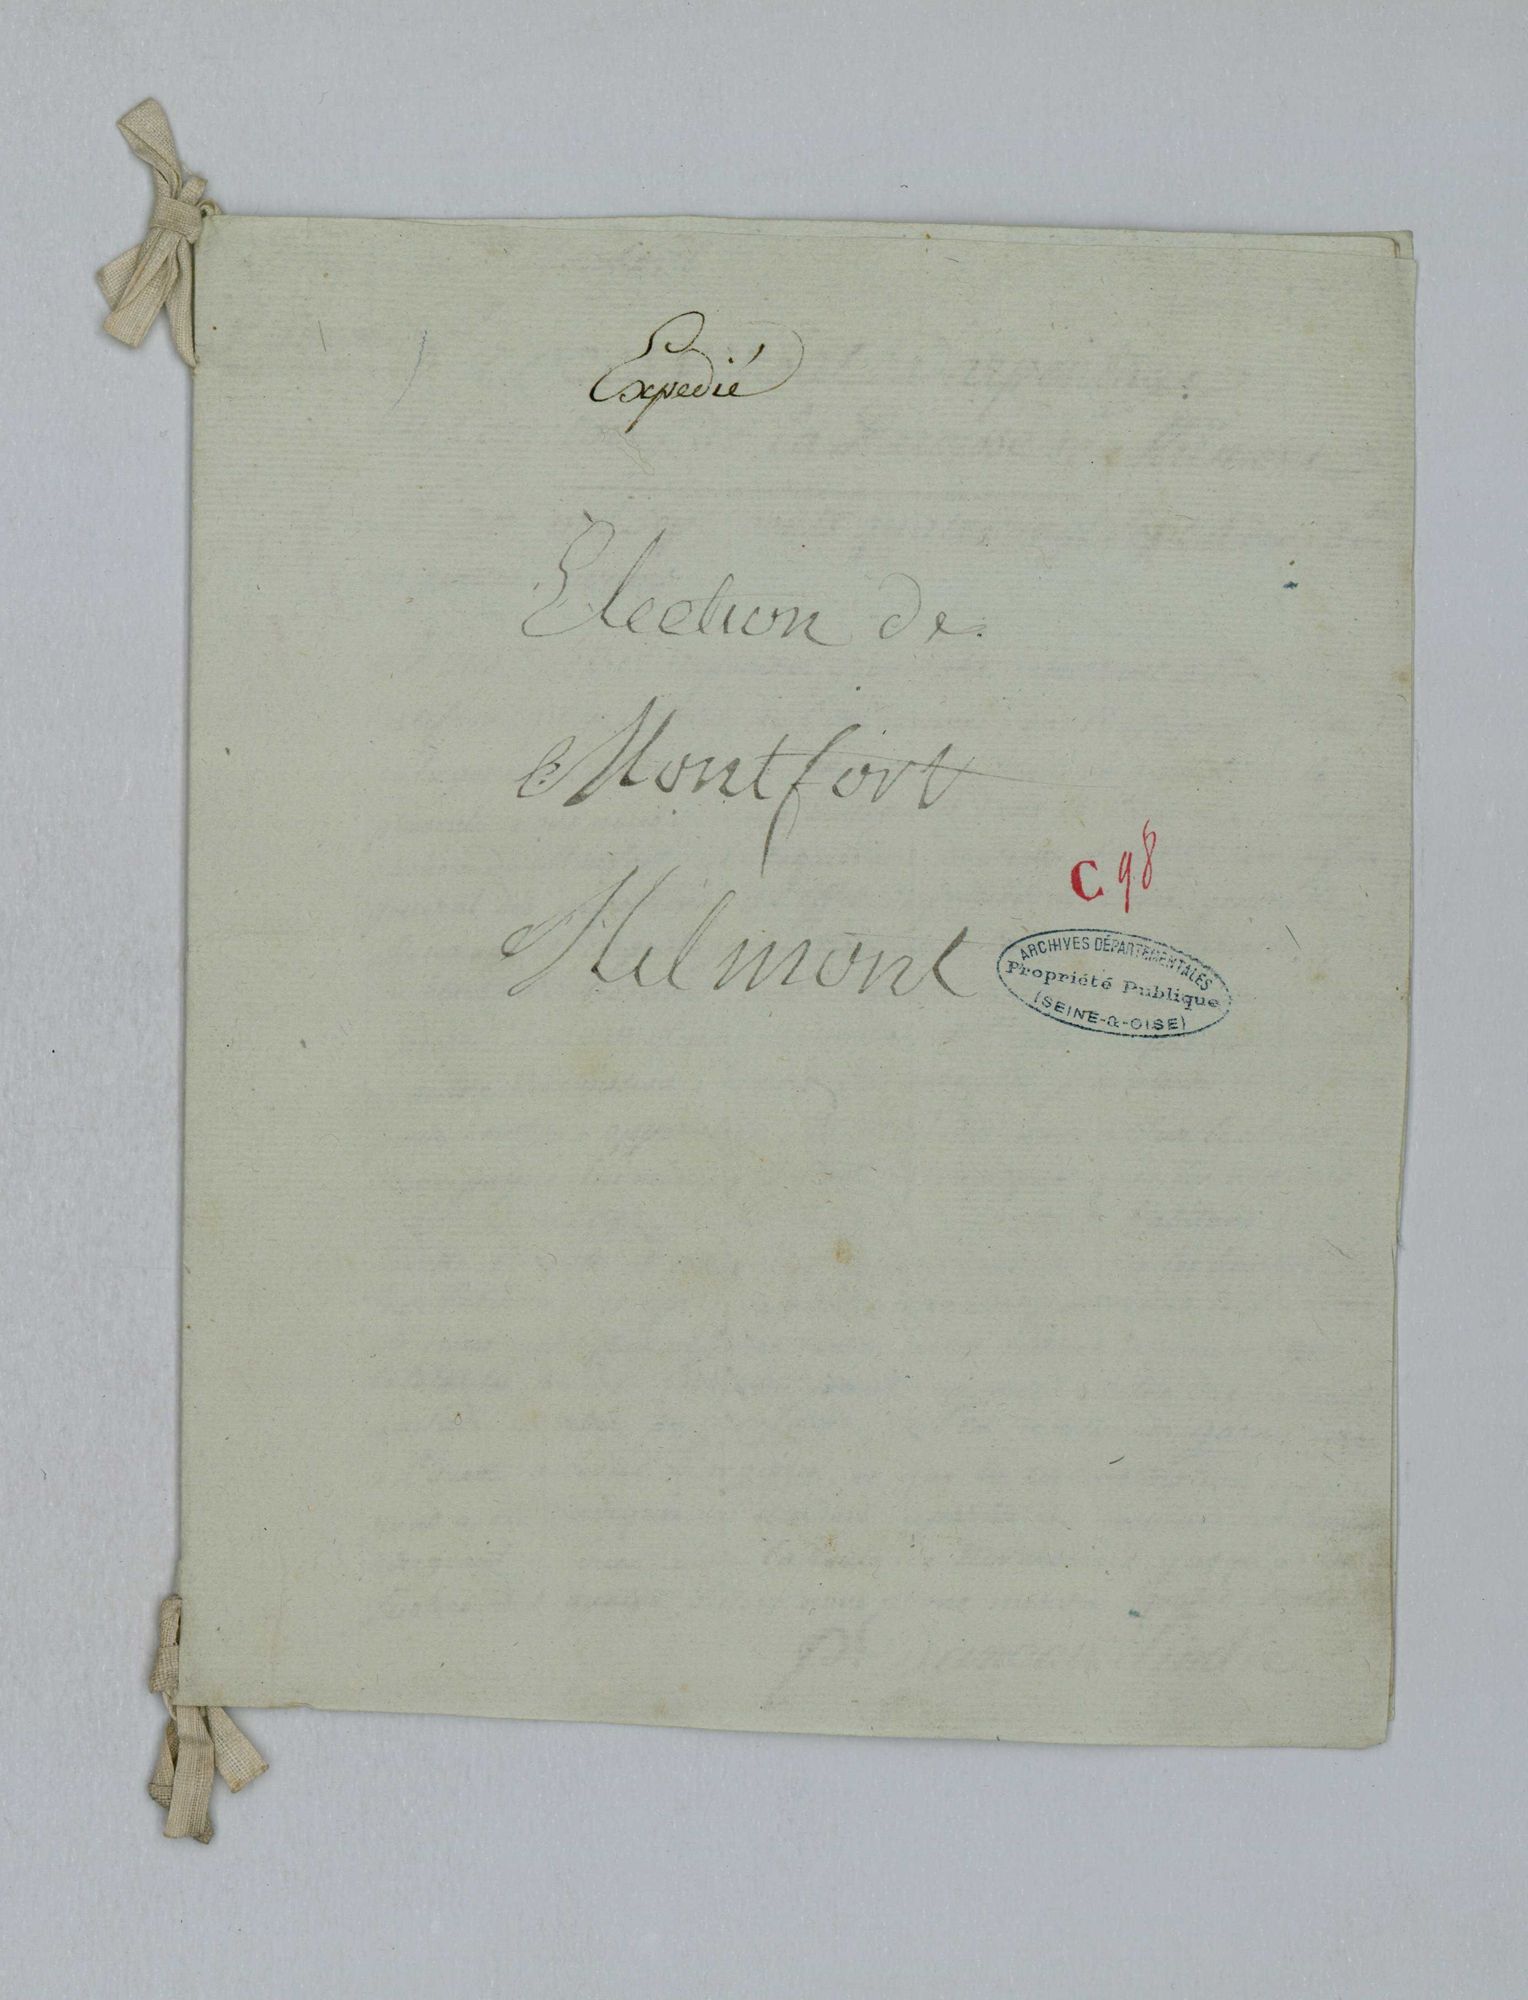 Expedié
Election de
Montfort
Melmont
C 98
ARCHIVES DÉPARTEMENTALES
Propriété Publique
(SEINE-&-OISE)